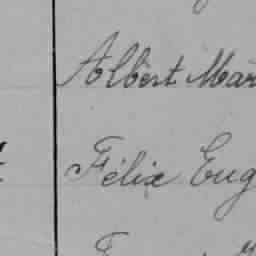 Albert Mar
Félix Eug